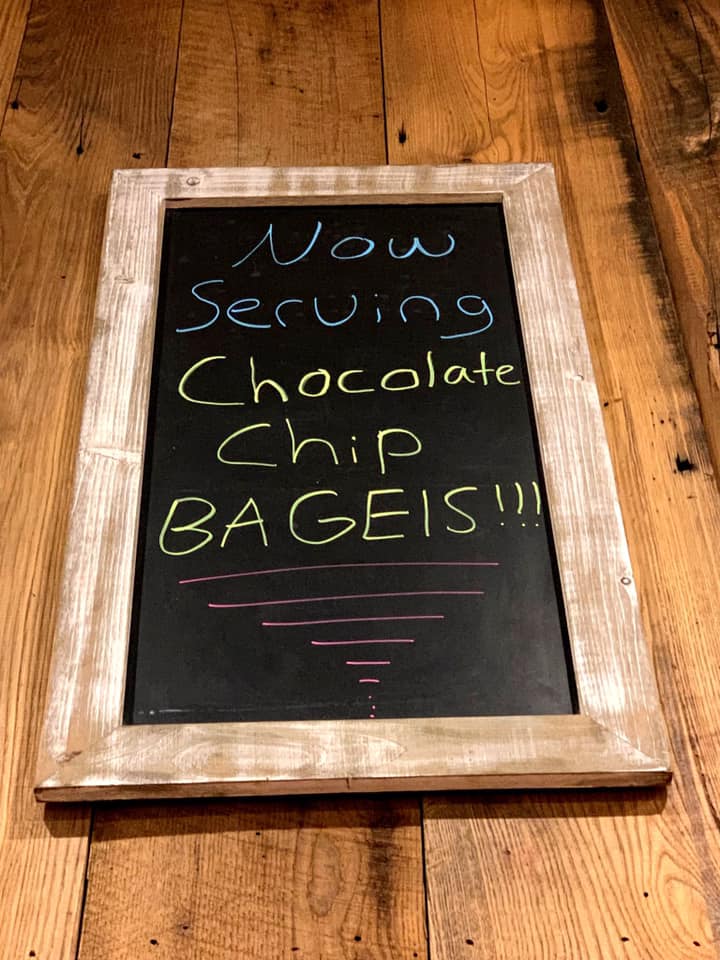 Now
Serving
Chocolate
Chip
BAGElS!!!